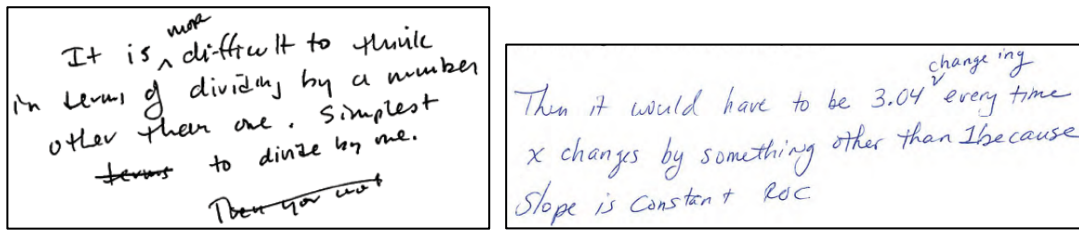 It is more difficult to think
in terms of dividing by a number
other than one. Simplest
terms to divide by one.
Then you
changeing
Then it would have to be 3.04 every time
x changes by something other than 1 because
Slope is constant ROC